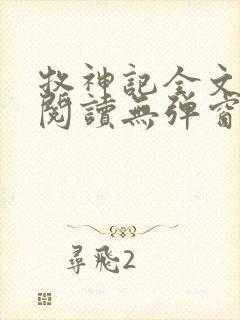 牧神記全文
閱讀無彈窗
尋飛2